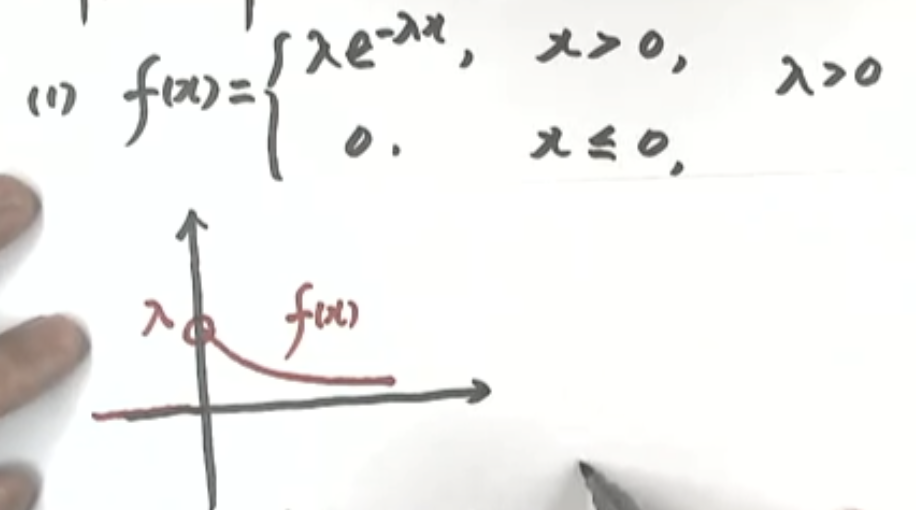 (1) f(x)= { λe^{-λx}, x>0, λ>0
0. x≤0,
λ f(x)